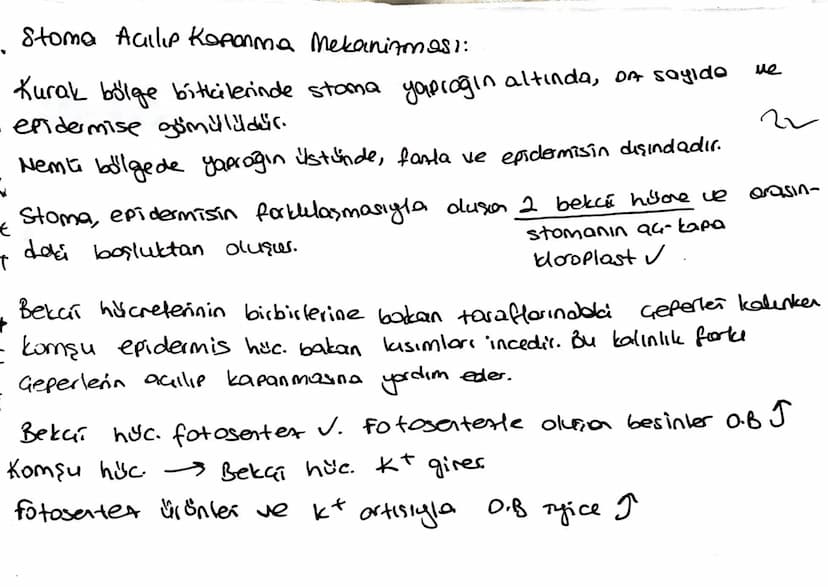 Stoma Açılıp Kapanma Mekanizması:
Kurak bölge bitkilerinde stoma yaprağın altında, az sayıda ve
epidermise gömülüdür.
Nemli bölgede yaprağın üstünde, fazla ve epidermisin dışındadır.
Stoma, epidermisin farklılaşmasıyla oluşan 2 bekçi hücre ve arasın-
daki boşluktan oluşur.
stomanın aç-kapa
kloroplast ✓
Bekçi hücrelerinin birbirlerine bakan taraflarındaki çeperler kalınken
komşu epidermis hüc. bakan kısımları incedir. Bu kalınlık farkı
çeperlerin açılıp kapanmasına yardım eder.
Bekçi hüc. fotosentez ✓. Fotosentezle oluşan besinler O.B ↑
Komşu hüc. → Bekçi hüc. K+ girer
Fotosentez ürünler ve K+ artışıyla O.B iyice ↑